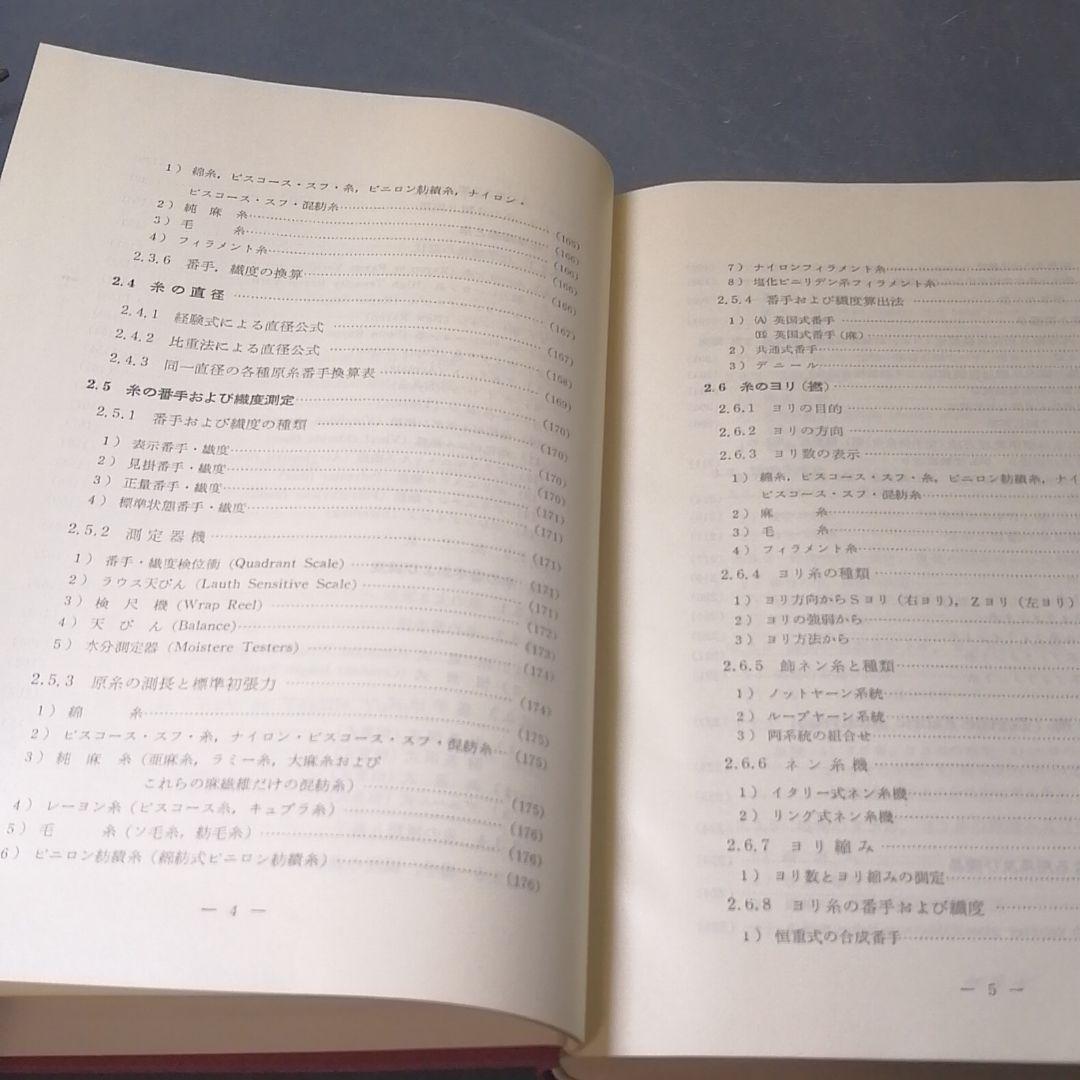 1) 綿糸，ビスコース・スフ・糸，ビニロン紡績糸，ナイロン・
ビスコース・スフ・混紡糸……(165)
2) 純麻糸……(166)
3) 毛糸……(166)
4) フィラメント糸……(166)
2.3.6 番手，繊度の換算……(166)
2.4 糸の直径……(167)
2.4.1 経験式による直径公式……(167)
2.4.2 比重法による直径公式……(168)
2.4.3 同一直径の各種原糸番手換算表……(169)
2.5 糸の番手および繊度測定……(170)
2.5.1 番手および繊度の種類……(170)
1) 表示番手・繊度……(170)
2) 見掛番手・繊度……(170)
3) 正量番手・繊度……(171)
4) 標準状態番手・繊度……(171)
2.5.2 測定器機……(171)
1) 番手・繊度検位衡 (Quadrant Scale)……(171)
2) ラウス天びん (Lauth Sensitive Scale)……(171)
3) 検尺機 (Wrap Reel)……(172)
4) 天びん (Balance)……(173)
5) 水分測定器 (Moistere Testers)……(174)
2.5.3 原糸の測長と標準初張力……(174)
1) 綿糸……(175)
2) ビスコース・スフ・糸，ナイロン・ビスコース・スフ・混紡糸……(175)
3) 純麻糸 (亜麻糸，ラミー糸，大麻糸および
これらの麻繊維だけの混紡糸)……(175)
4) レーヨン糸 (ビスコース糸，キュプラ糸)……(176)
5) 毛糸 (ソ毛糸，紡毛糸)……(176)
6) ビニロン紡績糸 (綿紡式ビニロン紡績糸)……(176)
— 4 —
7) ナイロンフィラメント糸……
8) 塩化ビニリデン系フィラメント糸……
2.5.4 番手および繊度算出法
1) (A) 英国式番手……
(B) 英国式番手 (麻)……
2) 共通式番手……
3) デニール……
2.6 糸のヨリ (撚)……
2.6.1 ヨリの目的……
2.6.2 ヨリの方向……
2.6.3 ヨリ数の表示……
1) 綿糸，ビスコース・スフ・糸，ビニロン紡績糸，ナイ
ビスコース・スフ・混紡糸……
2) 麻糸……
3) 毛糸……
4) フィラメント糸……
2.6.4 ヨリ糸の種類……
1) ヨリ方向からSヨリ (右ヨリ)，Zヨリ (左ヨリ)
2) ヨリの強弱から……
3) ヨリ方法から……
2.6.5 飾ネン糸と種類……
1) ノットヤーン系統……
2) ループヤーン系統……
3) 両系統の組合せ……
2.6.6 ネン糸機……
1) イタリー式ネン糸機……
2) リング式ネン糸機……
2.6.7 ヨリ縮み……
1) ヨリ数とヨリ縮みの測定……
2.6.8 ヨリ糸の番手および繊度……
1) 恒重式の合成番手……
— 5 —